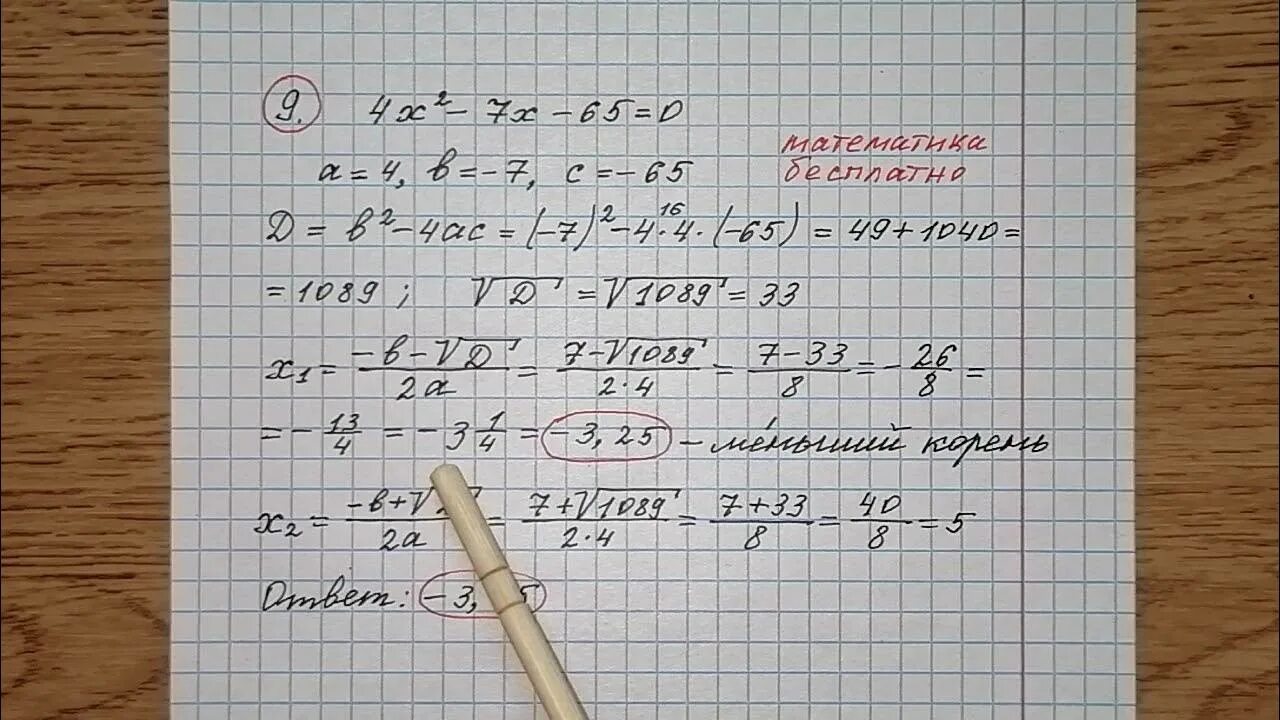 9. 4x² - 7x - 65 = 0
математика
бесплатно
a = 4, b = -7, c = -65
D = b² - 4ac = (-7)² - 4·4·(-65) = 49 + 1040 =
16
= 1089 ; √D = √1089 = 33
x₁ = (-b - √D)/(2a) = (7 - √1089)/(2·4) = (7 - 33)/8 = - 26/8 =
= - 13/4 = - 3 1/4 = -3,25 – ме́ньший корень
x₂ = (-b + √)/(2a) = (7 + √1089)/(2·4) = (7 + 33)/8 = 40/8 = 5
Ответ: -3, 5